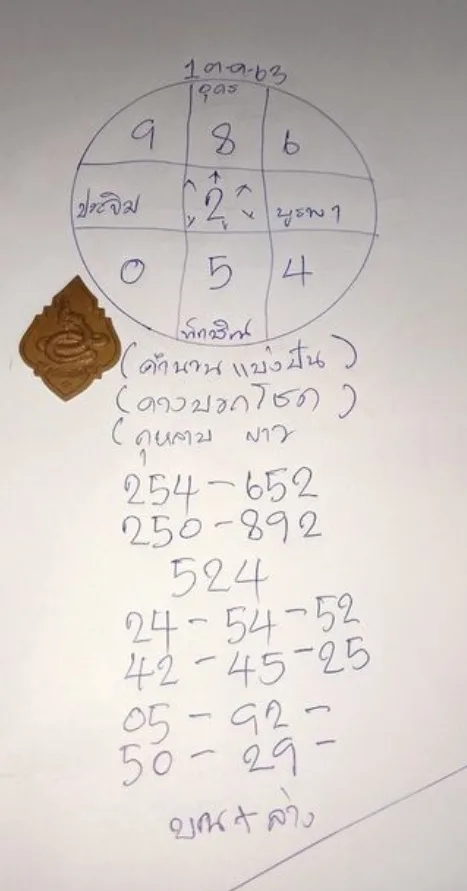 1 ต.ค. 63
อุดร
9 8 6
ประจิม 2 บูรพา
0 5 4
ทักษิณ
(คำนวน แบ่งปัน)
(ดาวบอกโชค)
(กุหลาบ ขาว
254 - 652
250 - 892
524
24 - 54 - 52
42 - 45 - 25
05 - 92 -
50 - 29 -
บน + ล่าง